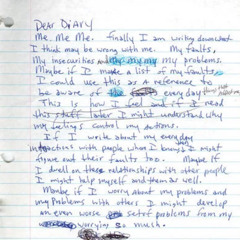 Dear Diary
Me. Me. Me. Finally I am writing down what
I think may be wrong with me. My faults,
My insecurities my problems.
Maybe if I made a list of my faults
I could use this as a reference to
be aware of the everyday
This is how I feel and if I read
this stuff later I might understand why
my feelings control my actions.
If I write about my everyday
interactions with people when I know I might
figure out their faults too. Maybe if
I dwell on these relationships with other people
I might help myself and them as well.
Maybe if I worry about my problems and
my Problems with others I might develop
an even worse set of problems from my
worrying so much.